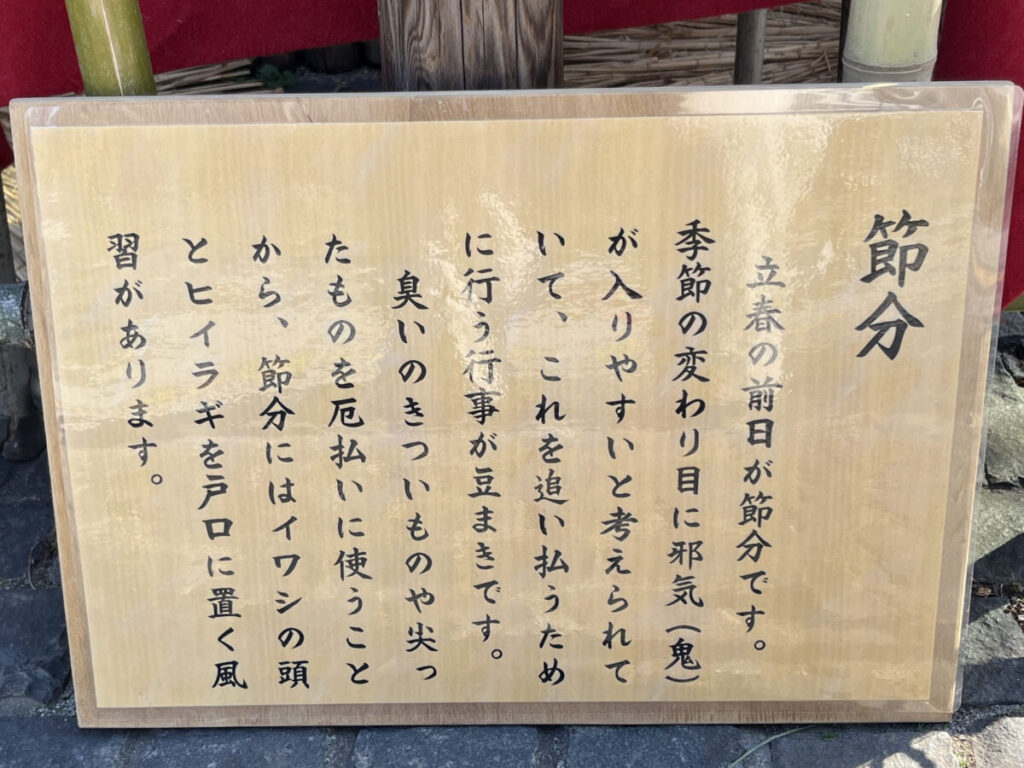 節分
立春の前日が節分です。
季節の変わり目に邪気(鬼)
が入りやすいと考えられて
いて、これを追い払うため
に行う行事が豆まきです。
臭いのきついものや尖っ
たものを厄払いに使うこと
から、節分にはイワシの頭
とヒイラギを戸口に置く風
習があります。